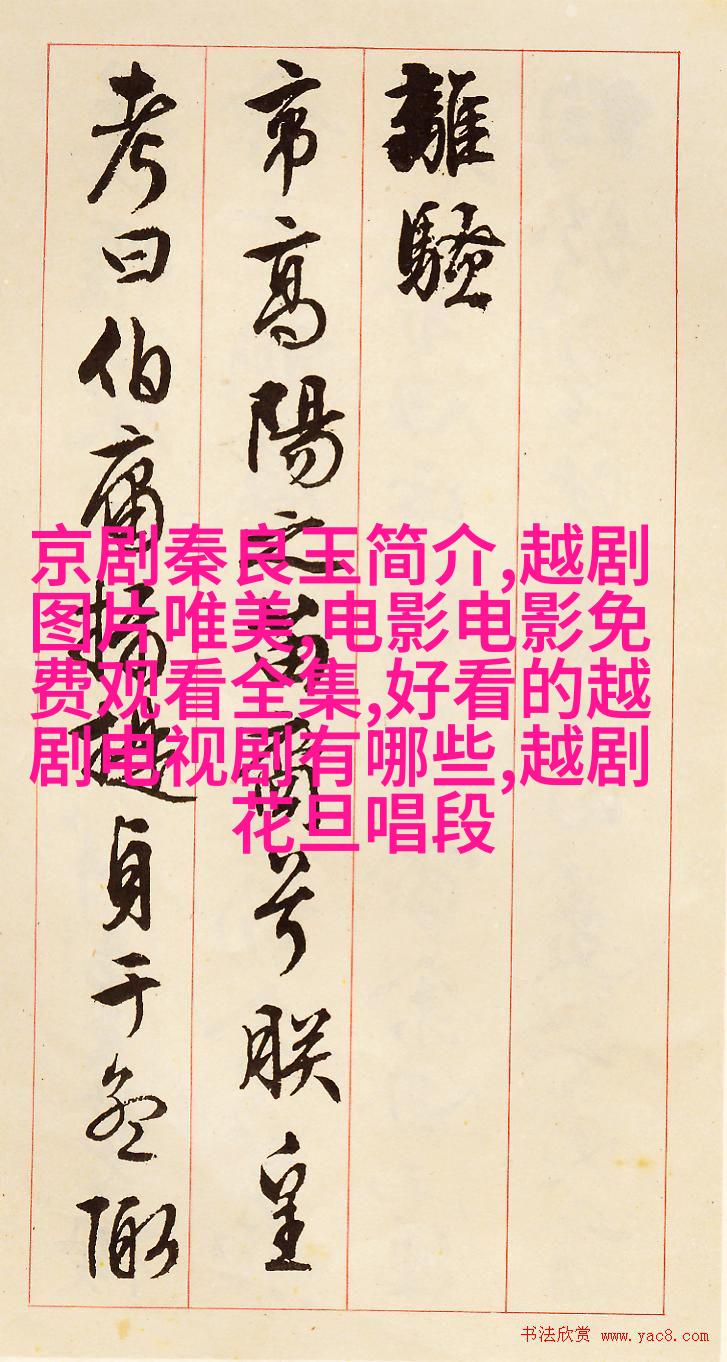 離騷
帝高陽之苗裔兮朕皇
考曰伯庸攝提貞于孟陬
京剧秦良玉简介,越剧
图片唯美,电影电影免
费观看全集,好看的越
剧电视剧有哪些,越剧
花旦唱段
书法欣赏 www.yac8.com